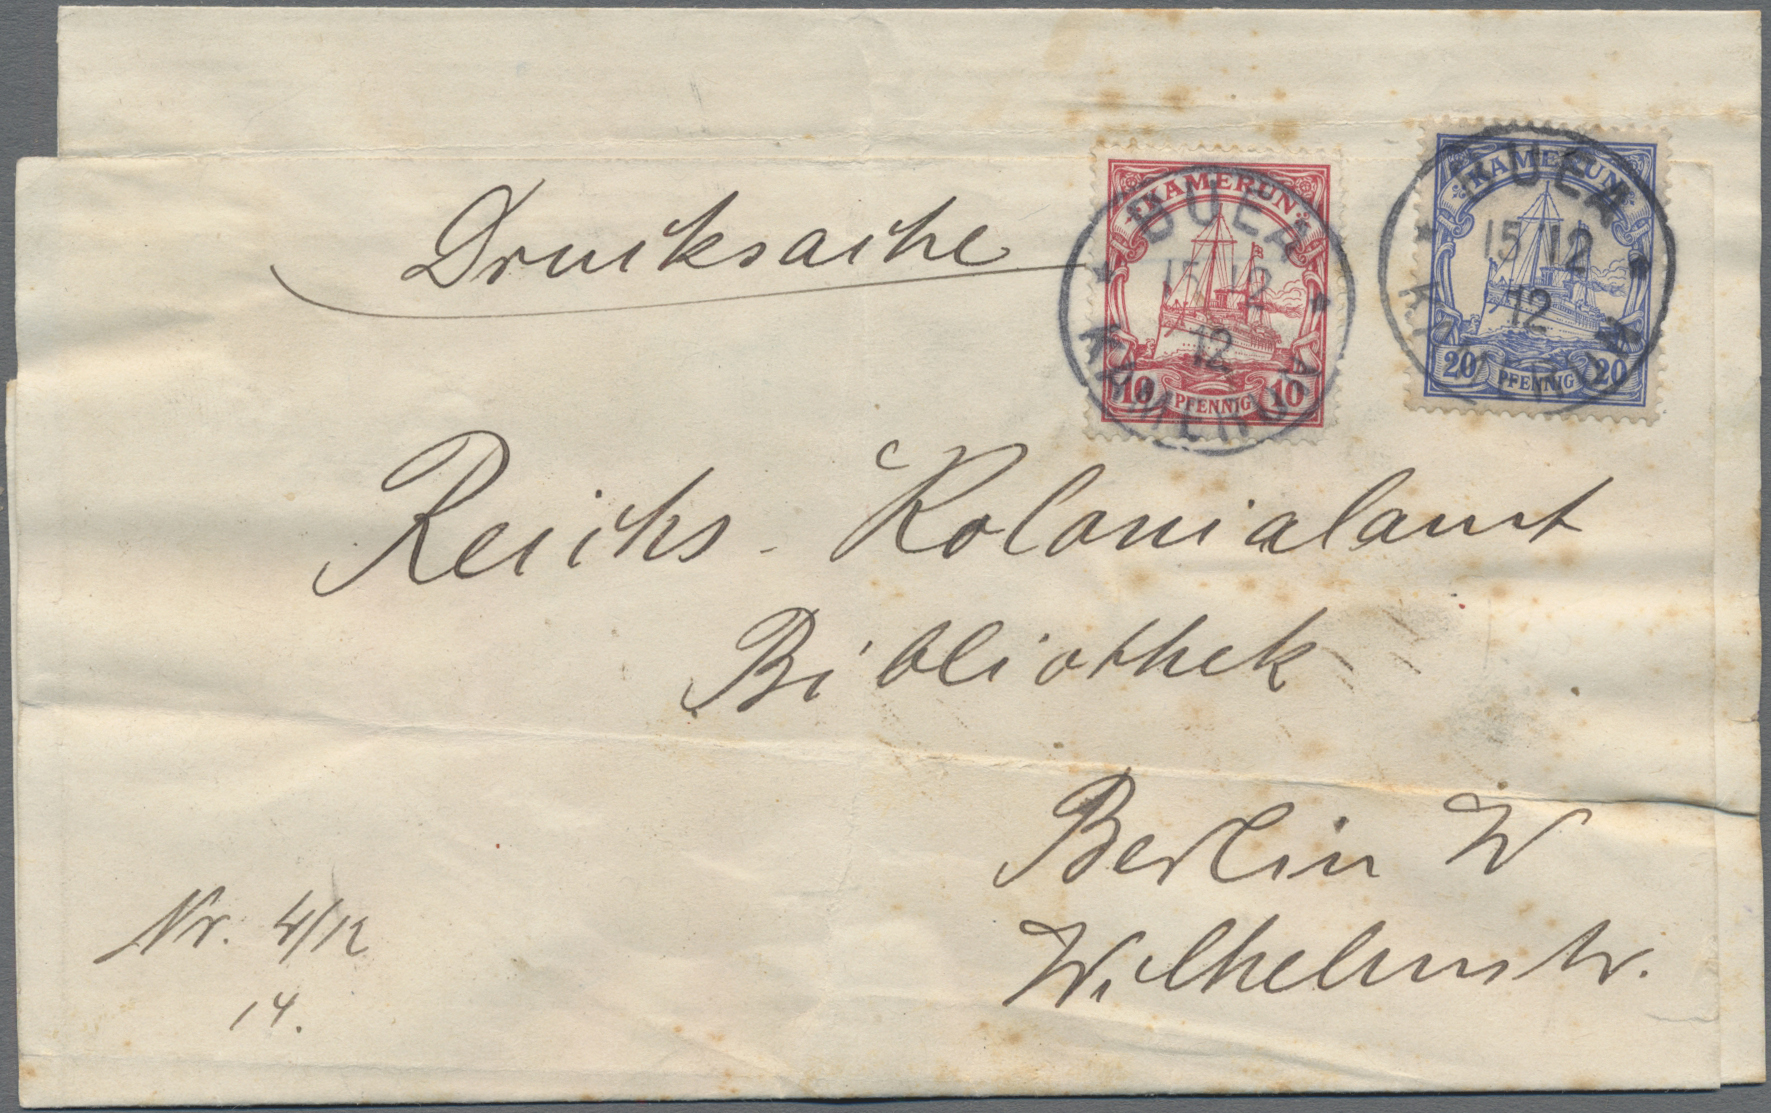 Drucksache
KAMERUN
10 PFENNIG 10
BUEA
15 12
12
KAMERUN
KAMERUN
20 PFENNIG 20
BUEA
15 12
12
KAMERUN
Reichs-Kolonialamt
Bibliothek
Berlin W
Wilhelmstr.
Nr. 4/12
14.